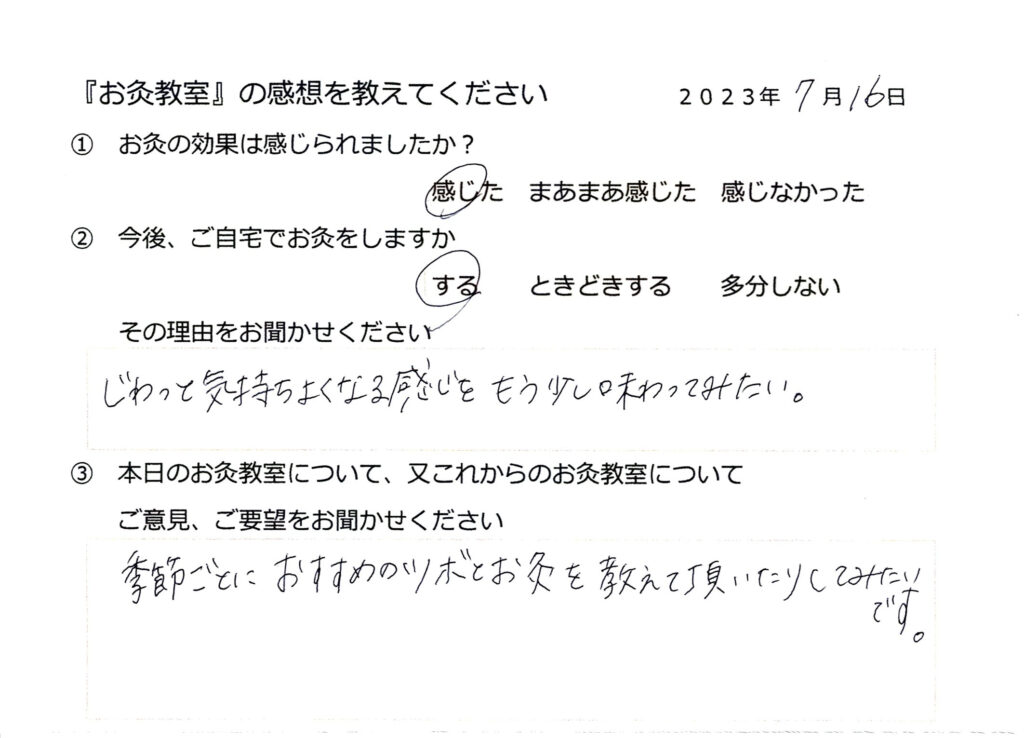 『お灸教室』の感想を教えてください　２０２３年 7 月 16 日
①　お灸の効果は感じられましたか？
感じた　まあまあ感じた　感じなかった
②　今後、ご自宅でお灸をしますか
する　ときどきする　多分しない
その理由をお聞かせください
じわっと気持ちよくなる感じを もう少し味わってみたい。
③　本日のお灸教室について、又これからのお灸教室について
ご意見、ご要望をお聞かせください
季節ごとに おすすめのツボとお灸を 教えて頂いたりしてみたい
です。